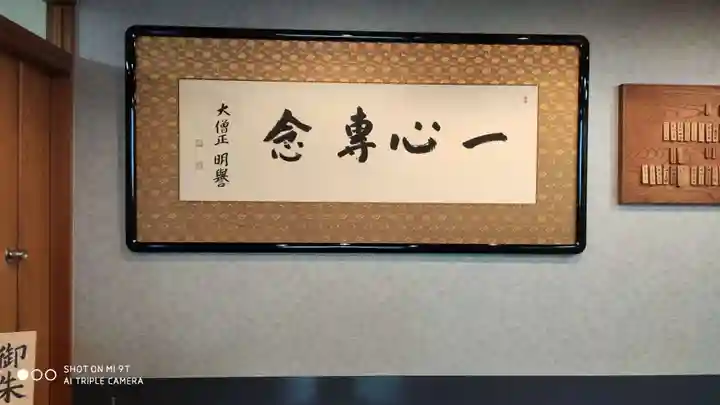 一心專念
大僧正 明譽
御朱
SHOT ON MI 9T
AI TRIPLE CAMERA